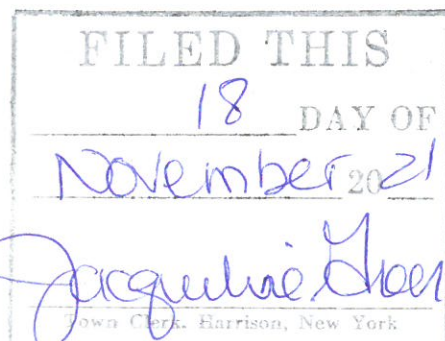 FILED THIS
18 DAY OF
November 2021
Jacqueline Greer
Town Clerk. Harrison, New York